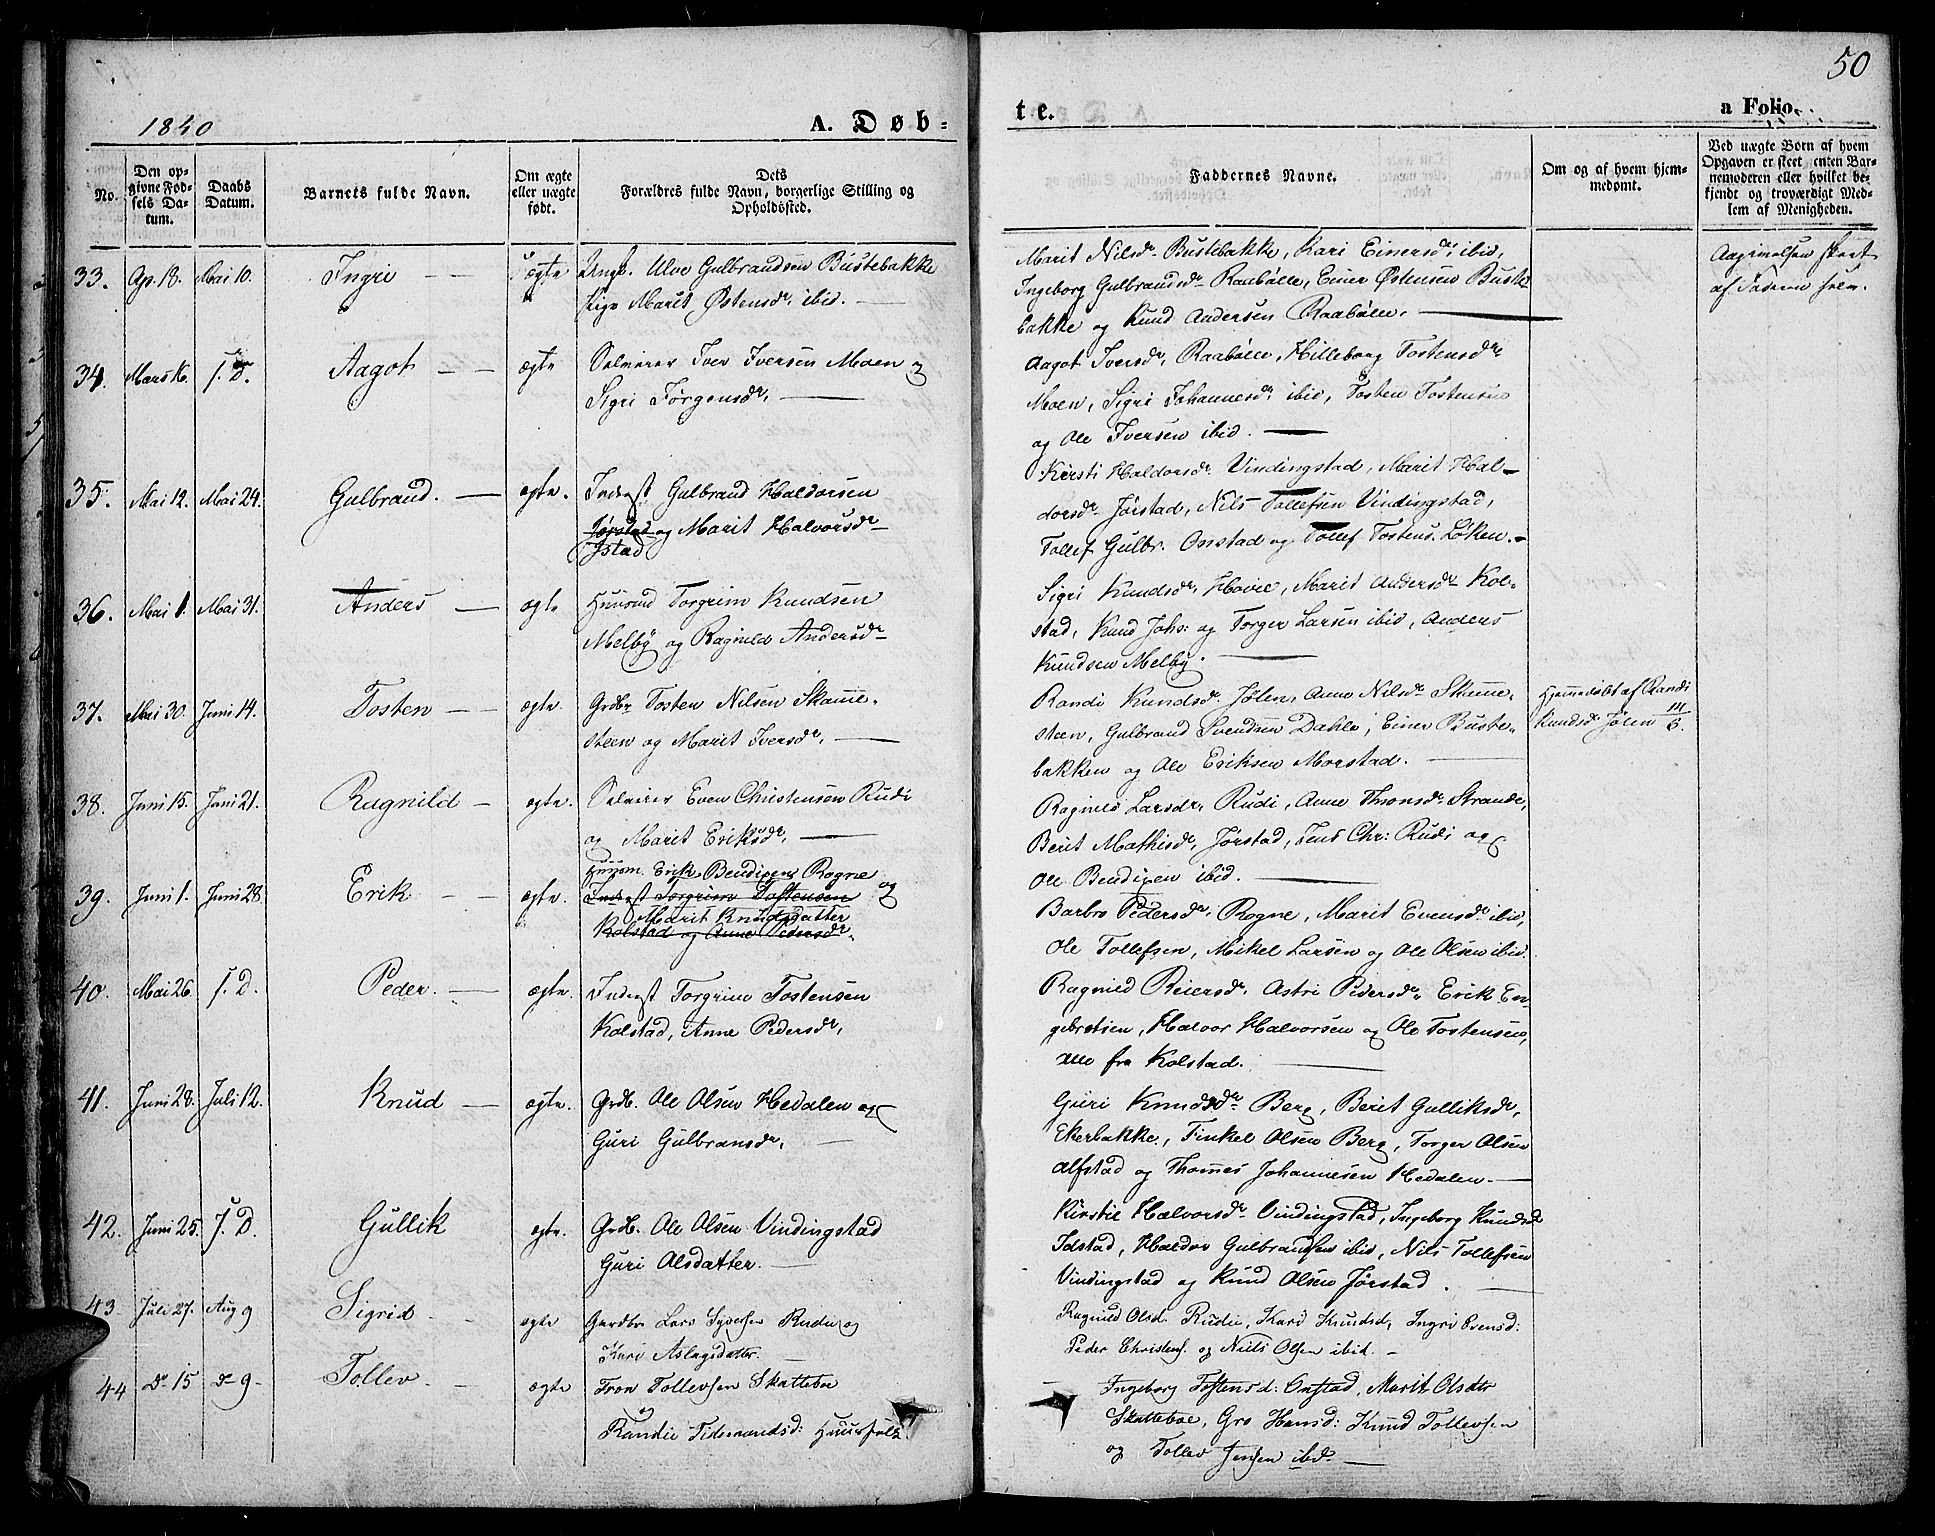 50
1840
A. Døb=
te.
a Folio.
No.
Den opgivne Fødsels Datum.
Daabs Datum.
Barnets fulde Navn.
Om ægte eller uægte født.
Dets Forældres fulde Navn, borgerlige Stilling og Opholdssted.
Faddernes Navne.
Om og af hvem hjemmedømt.
Ved uægte Børn af hvem Opgaven er skeet enten Barnemoderen eller hvilket bekjendt og troværdigt Medlem af Menigheden.
33. Ap. 18. Mai 10. Ingri — uægte Ungk. Ulve Gulbrandsen Bustebakke
Pige Marit Østensdr ibid. —
Marit Nilsdr Bustebakke, Kari Einersdr ibid,
Ingeborg Gulbrandsdr Raabølle, Einer Østensen Buste
bakke og Knud Andersen Raabølle. —
Angivelsen skeet
af Faderen selv.
34. Mars 16. s. D. Aagot — ægte Selveier Iver Iversen Moen og
Sigri Jørgensdr, —
Aagot Iversdr, Raabølle, Hilleborg Tostensdr
Moen, Sigri Johannesdr ibid, Tosten Tostensen
og Ole Iversen ibid. —
35. Mai 12. Mai 24. Gulbrand. — ægte. Inderst Gulbrand Haldorsen
Jørstad og Marit Halvorsdr
Istad
Kirsti Haldorsdr Vindingstad, Marit Hal-
dorsdr Jørstad, Nils Tollefsen Vindingstad,
Tollef Gulbr. Onstad og Tollef Tostens. Løken. -
36. Mai 1. Mai 31. Anders — ægte Huusmd Torgrim Knudsen
Melby og Ragnild Andersdr
Sigri Knudsdr, Hovie, Marit Andersdr Kol-
stad, Knud Johs: og Torger Larsen ibid, Anders
Knudsen Melby. —
37. Mai 30. Juni 14. Tosten — ægte. Grdbr Tosten Nilsen Skamme-
steen og Marit Iversdr, —
Randi Knudsdr Jølen, Anne Nilsdr Skamme-
steen, Gulbrand Svendsen Dahle, Einer Buste-
bakken og Ole Eriksen Morstad. —
Hjemmedøbt af Randi
Knudsdr Jølen
38. Juni 15. Juni 21. Ragnild — ægte. Selveier Even Christensen Rudi
og Marit Eriksdr, —
Ragnild Larsdr, Rudi, Anne Thomsdr Strande,
Berit Mathisdr, Jørstad, Jens Chr: Rudi og
Ole Bendixen ibid. —
39. Juni 1. Juni 28. Erik — ægte. Huusm. Erik Bendixens Rogne og
Inderst Torgrim Tostensen
Marit Knudsdatter
Kolstad og Anne Pedersdr.
Barbro Pedersdr, Rogne, Marit Evensdr ibid,
Ole Tollefsen, Mikel Larsen og Ole Olsen ibid.
40. Mai 26. s. D. Peder. — ægte. Inderst Torgrim Tostensen
Kolstad, Anne Pedersdr,
Ragnild Reiersdr, Astri Pedersdr, Erik En
gebretsen, Halvor Halvorsen og Ole Tostensen,
alle fra Kolstad. —
41. Juni 28. Juli 12. Knud — ægte. Grdb. Ole Olsen Hedalen og
Guri Gulbransdr, —
Guri Knudsdr Berg, Berit Gulliksdr,
Ekerbakke, Finkel Olsen Berg, Torger Olsen
Alfstad og Thomes Johannesen Hedalen. —
42. Juni 25. s. D. Gullik ægte. Grdb. Ole Olsen Vindingstad
Guri Alsdatter. —
Kirstie Halvorsdr Vindingstad, Ingeborg Knudsd
Idstad, Haldor Gulbrandsen ibid, Nils Tollefsen
Vindingstad og Knud Olsen Jørstad. —
43. Juli 27. Aug 9 Sigrid — ægte Gaardbr Lars Syversen Rudie og
Kari Aslagsdatter. —
Ragnild Olsd. Rudie, Kari Knudsd, Ingri Evensd:
Peder Christens. og Niels Olsen ibid. -
44 Do 15 Do 9 - Tollev — ægte Tron Tollevsen Skattebøe
og
Randie Tidemandsd: Huusfolk
Ingeborg Tostensd: Onstad, Marit Olsdtr
Skattebøe, Gro Hansd: Knud Tollevsen
og Tollev Jensen ibid. —